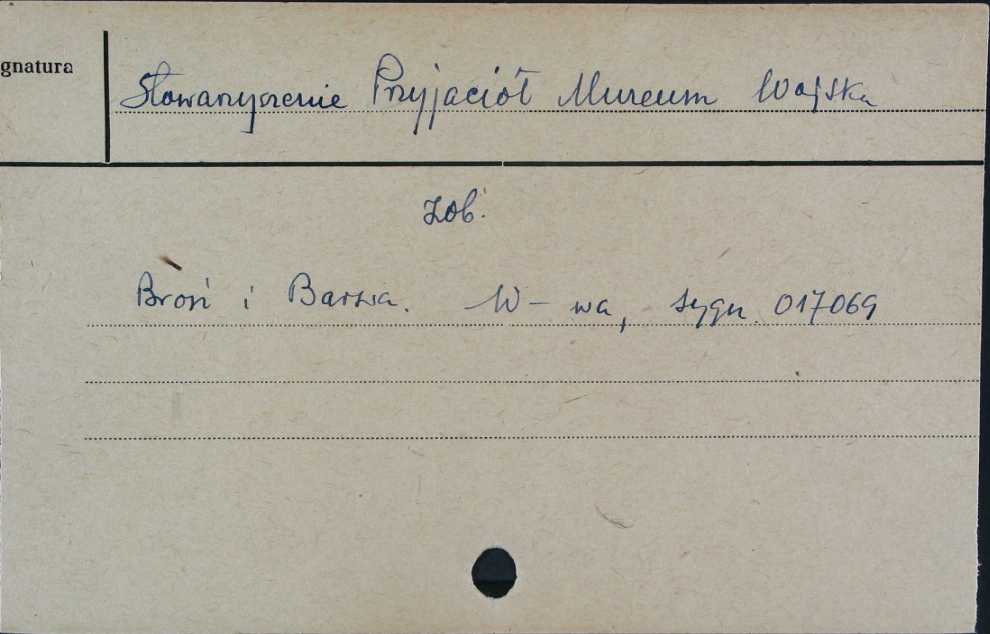 gnatura
Stowarzyszenie Przyjaciół Muzeum Wojska
zob.
Broń i Barwa. W-wa, sygn. 017069